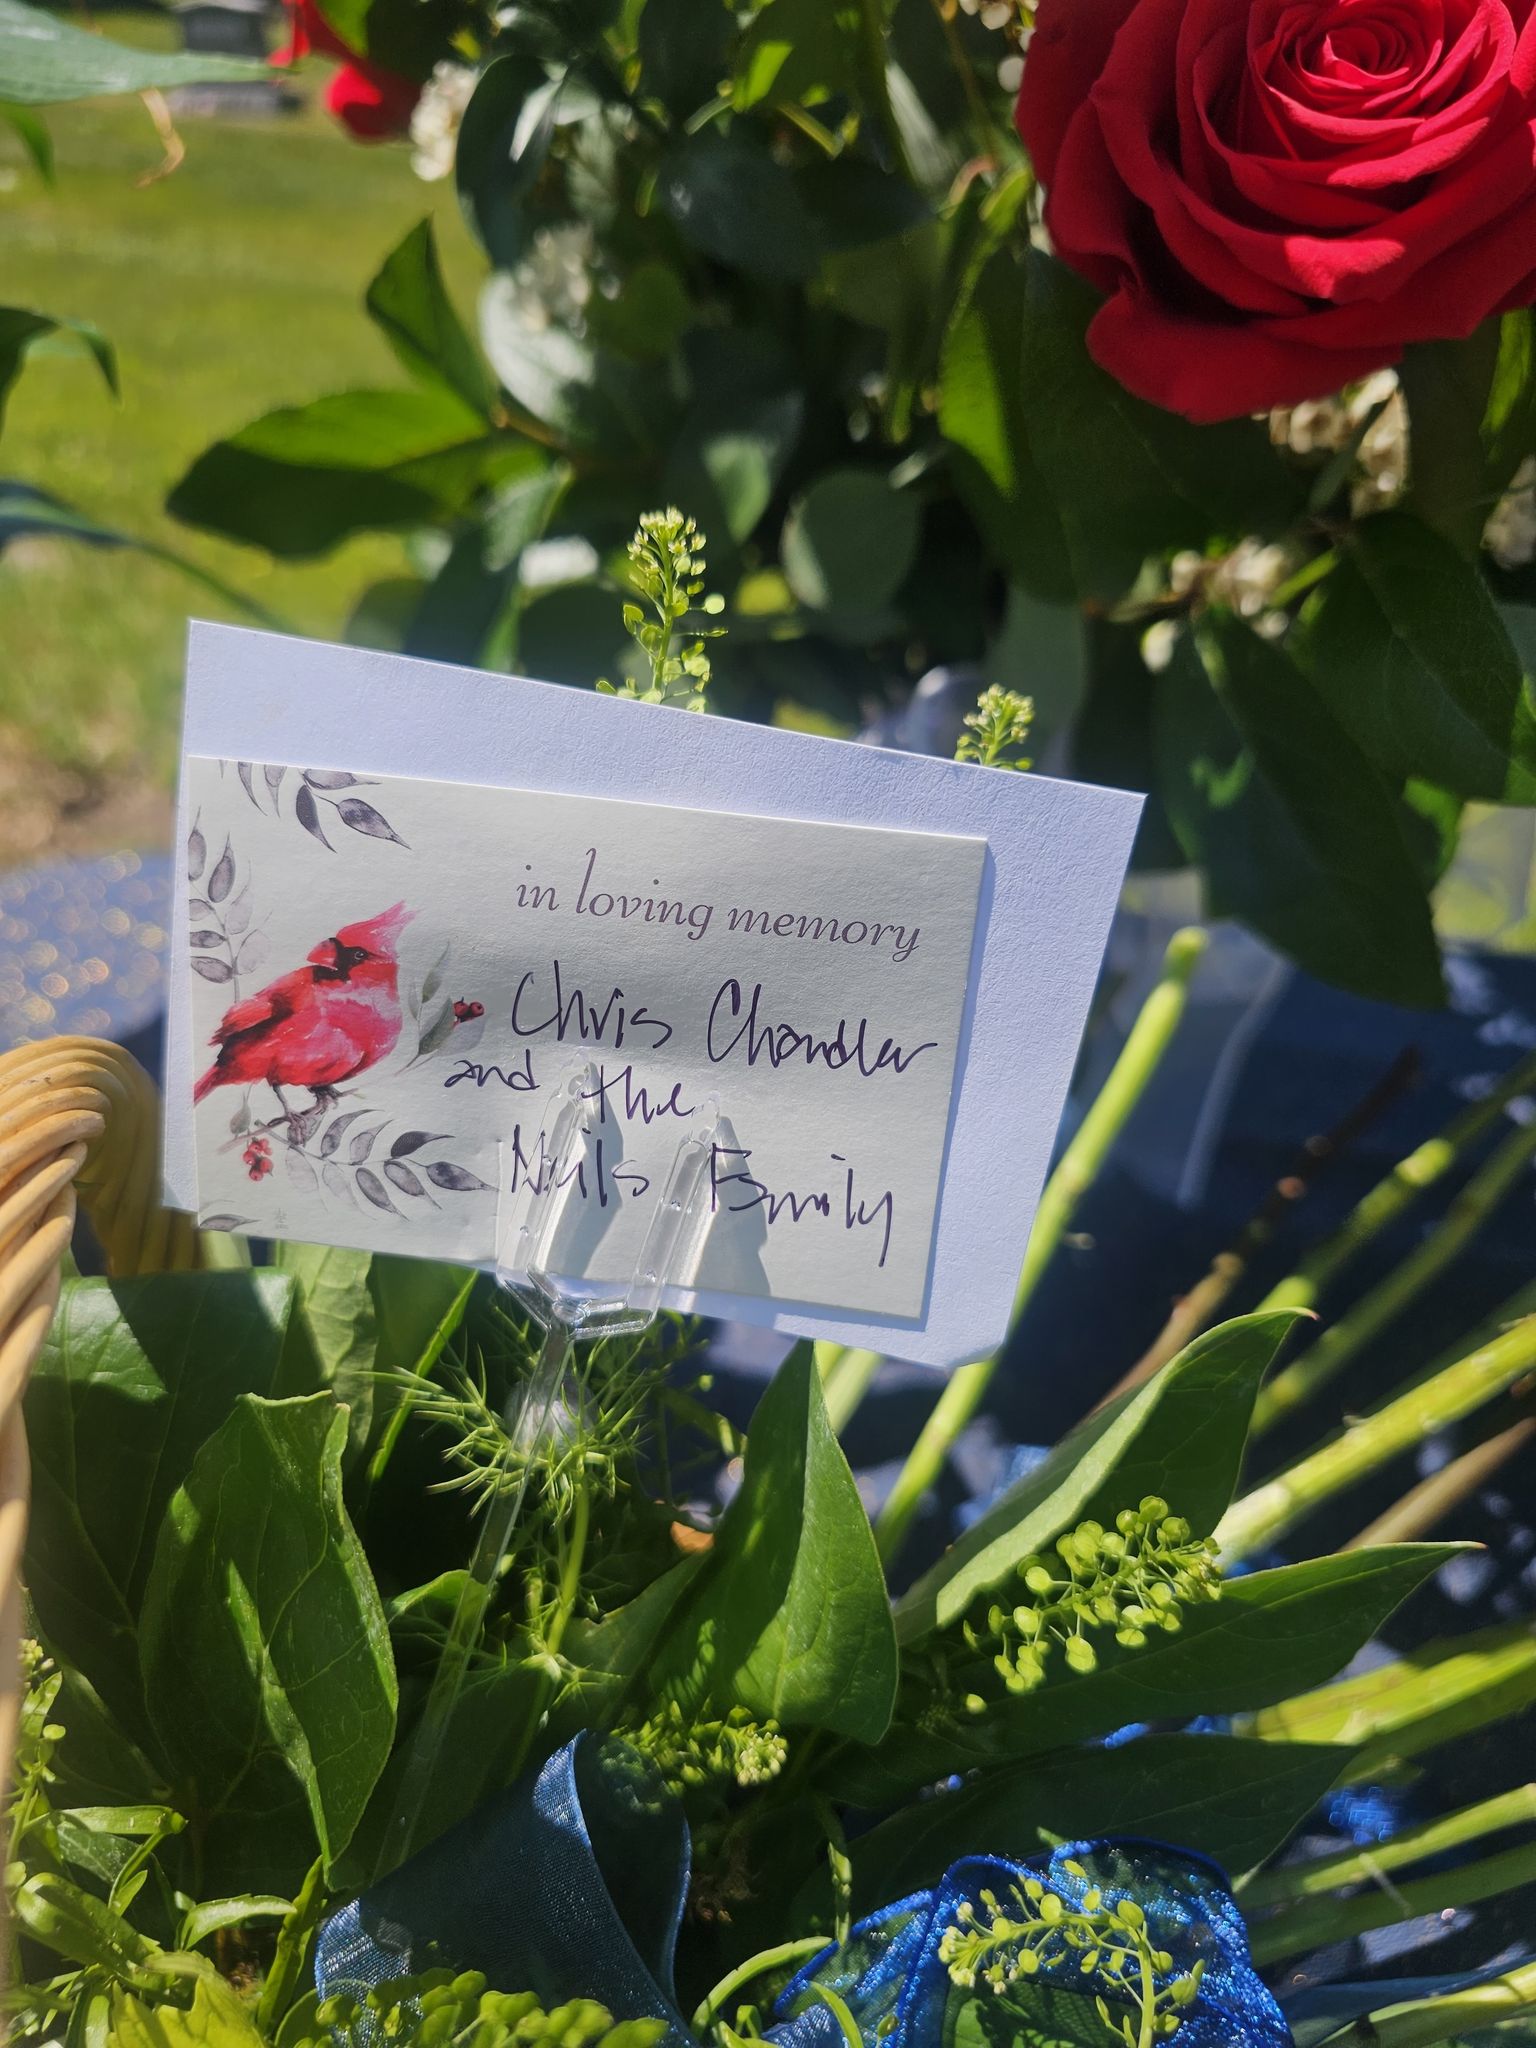 in loving memory
Chris Chandler
and the
Neils Family